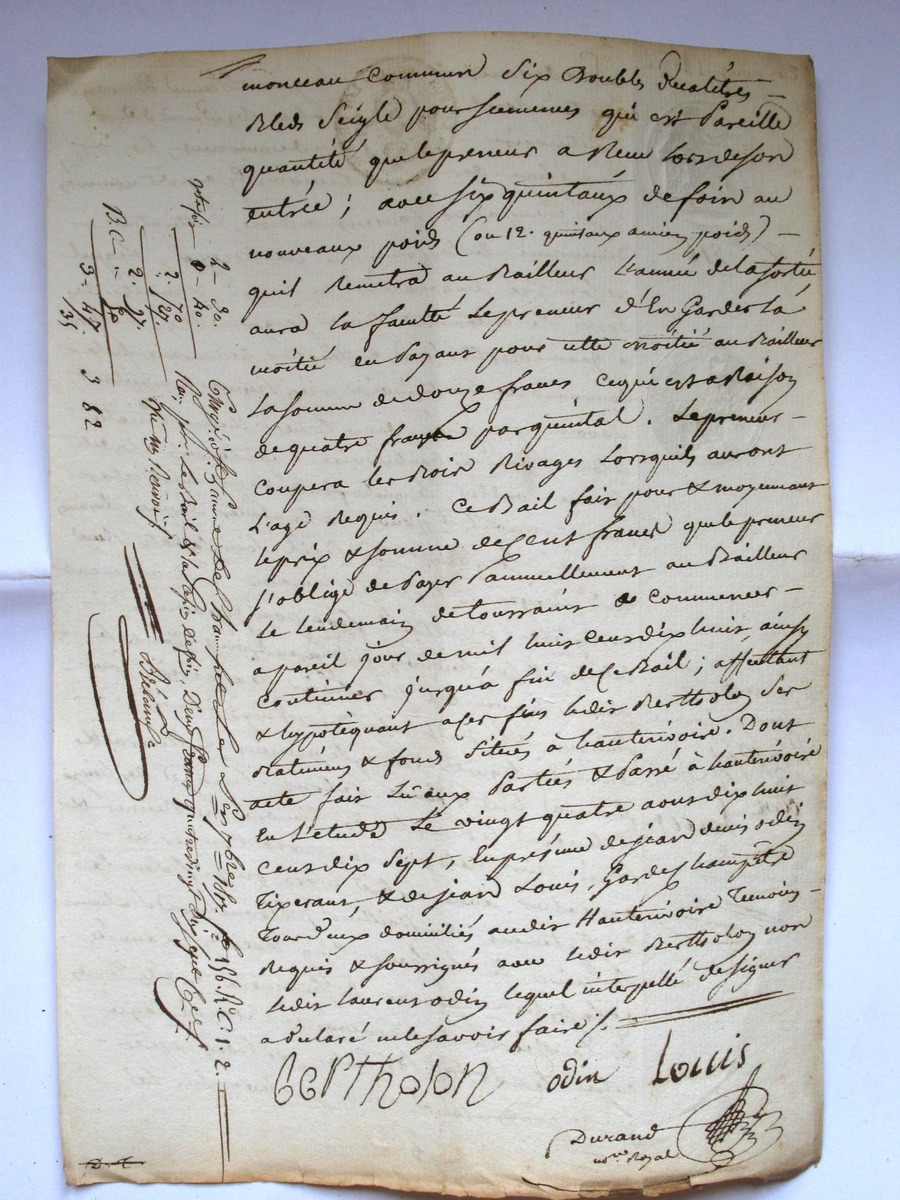 monceau commun six Doubles Decalitres
Bleds Seigle pour semences qui est Pareille
quantité que le preneur a Reçu lors de son
entrée ; avec six quintaux de foin au
nouveaux poids (ou 12. quintaux ancien poids)
qu'il Remetra au Bailleur l'année de la sortie
aura la faculté Le preneur d'En Garder La
moitié en Payant pour cette moitié au Bailleur
La somme de douze francs ce qui est a Raison
de quatre francs par quintal. Le preneur
Coupera les Bois Rivages Lorsquils auront
L'age Requis. Ce Bail fait pour & moyennant
le prix & somme de Cent francs que le preneur
s'oblige de Payer annuellement au Bailleur
Le lendemain de toussaint de commencer
a pareil jour de mil huit cent dix huit, ainsy
Continuer jusqu'a fin de Ce Bail ; affectant
& hypotequant a ces fins ledit Bertholon Ses
Batimens & fonds Situés à hauterivoire. Dont
acte fait Lu aux Parties & Passé à hauterivoire
En L'etude Le vingt quatre aout dix huit
Cent dix Sept, En présence de jean denis odin
Tixerant, & de jean Louis, Garde champêtre
Tous deux domiciliés audit Hauterivoire Temoins
Requis & soussignés avec ledit Bertholon non
ledit laurent odin lequel interpellé de signer
a declaré ne le savoir faire /.
BERTHOLON odin Louis
Durand
nore Royal
2 - 20.
0 - 40.
2. 70
27.
2. 97.
50
3 - 47
35
3 82
Le Bail
Deux francs quatre vingt dix sept
156. R. C. 1. 2.